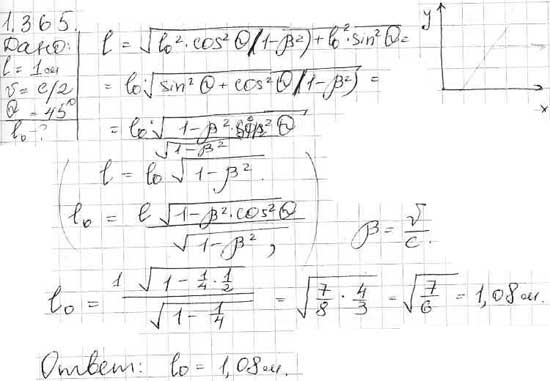 1.365.
Дано:
l = 1 м
v = c/2
Θ = 45°
l₀ - ?
l = √(l₀²·cos²Θ(1-β²) + l₀²·sin²Θ) =
= l₀·√(sin²Θ + cos²Θ(1-β²)) =
= l₀·√(1-β²· cos²Θ)
√(1-β²)
( l = l₀ √(1-β²). )
l₀ = l √(1-β²·cos²Θ) / √(1-β²) ,
β = v/c.
l₀ = 1 √(1 - 1/4 · 1/2) / √(1 - 1/4) = √(7/8 · 4/3) = √(7/6) = 1,08 м.
Ответ: l₀ = 1,08 м.
y
x